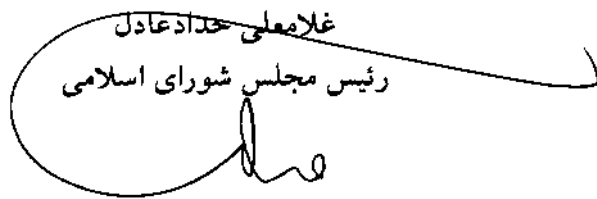 غلامعلی حدادعادل
رئیس مجلس شورای اسلامی